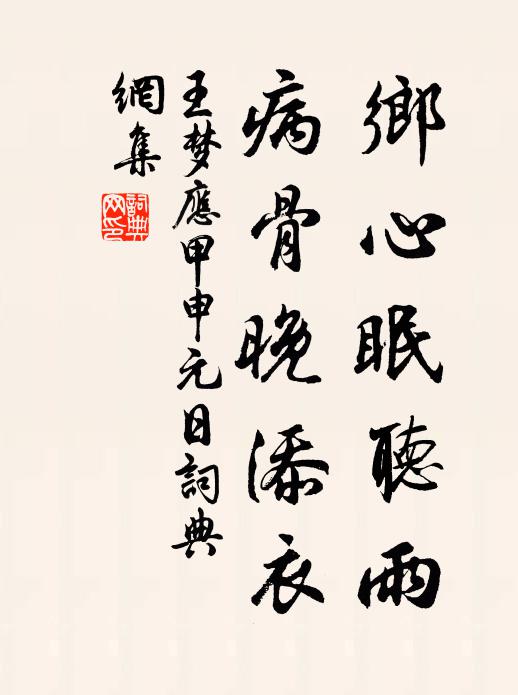 鄉心眠聽雨
病骨晚添衣
王梦應甲申元日詞典
網集
詞典网印